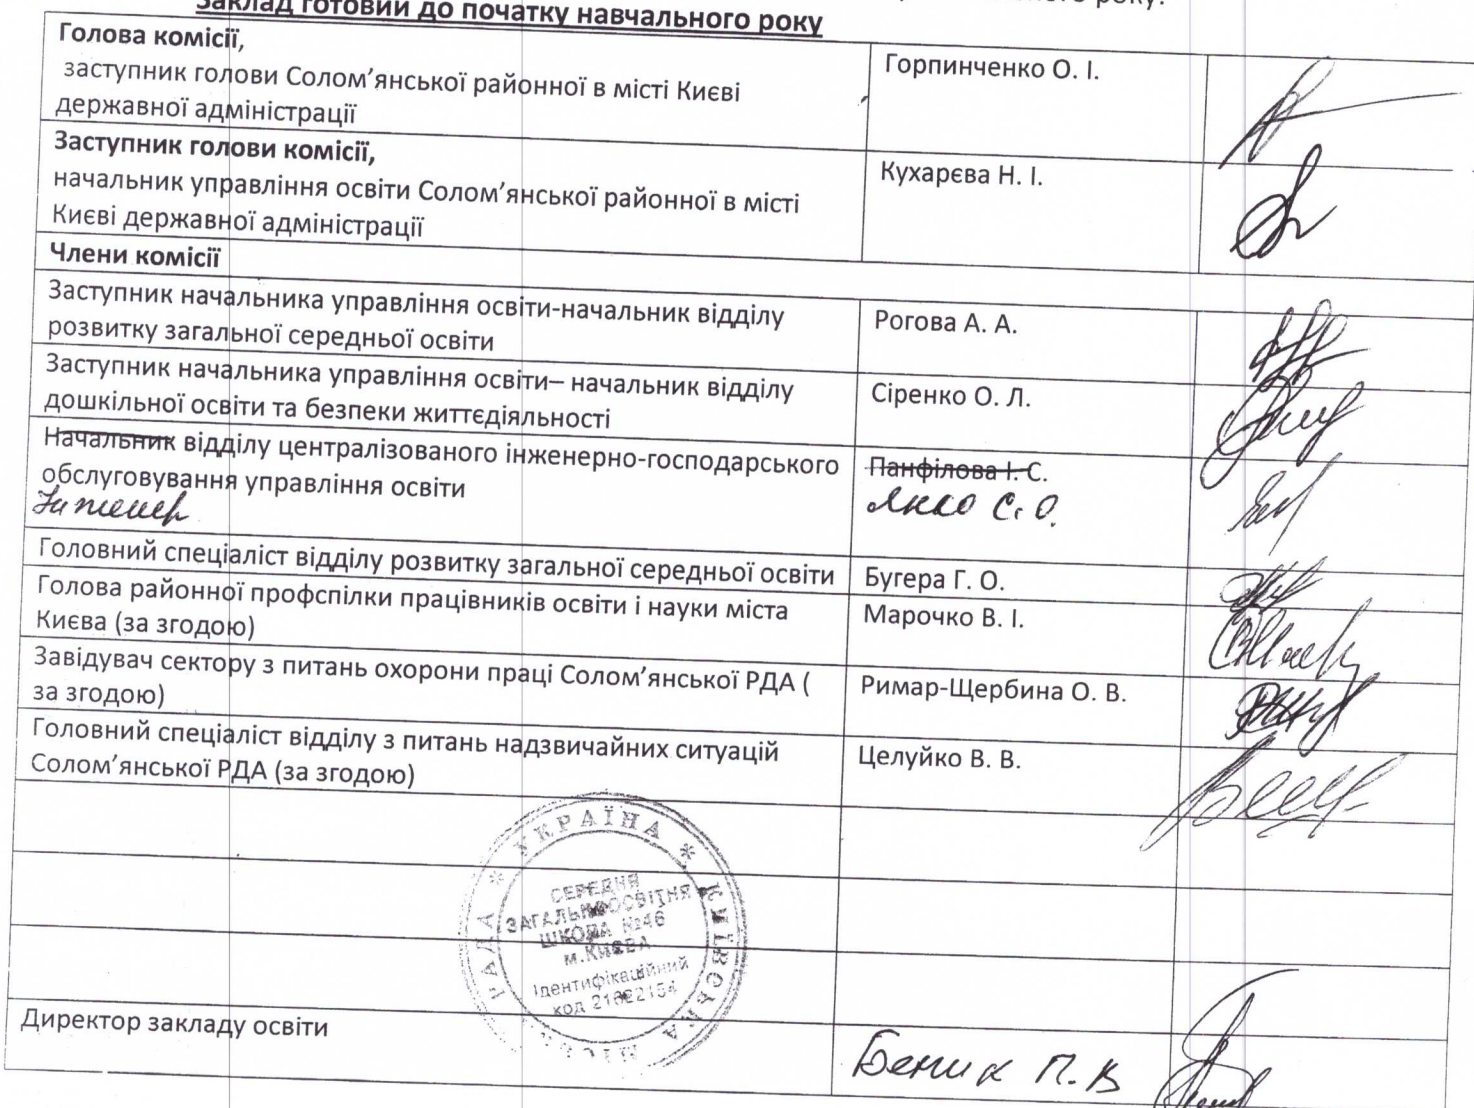 року.
Заклад готовий до початку навчального року
Голова комісії,
заступник голови Солом’янської районної в місті Києві
державної адміністрації
Горпинченко О. І.
Заступник голови комісії,
начальник управління освіти Солом’янської районної в місті
Києві державної адміністрації
Кухарєва Н. І.
Члени комісії
Заступник начальника управління освіти-начальник відділу
розвитку загальної середньої освіти
Рогова А. А.
Заступник начальника управління освіти– начальник відділу
дошкільної освіти та безпеки життєдіяльності
Сіренко О. Л.
Начальник відділу централізованого інженерно-господарського
обслуговування управління освіти
Інженер
Панфілова І. С.
С. О.
Головний спеціаліст відділу розвитку загальної середньої освіти
Бугера Г. О.
Голова районної профспілки працівників освіти і науки міста
Києва (за згодою)
Марочко В. І.
Завідувач сектору з питань охорони праці Солом’янської РДА (
за згодою)
Римар-Щербина О. В.
Головний спеціаліст відділу з питань надзвичайних ситуацій
Солом’янської РДА (за згодою)
Целуйко В. В.
УКРАЇНА * КИЇВСЬКА МІСЬКА РАДА *
СЕРЕДНЯ
ЗАГАЛЬНООСВІТНЯ
ШКОЛА №46
м.КИЄВА
Ідентифікаційний
код
Директор закладу освіти
Беник П. В